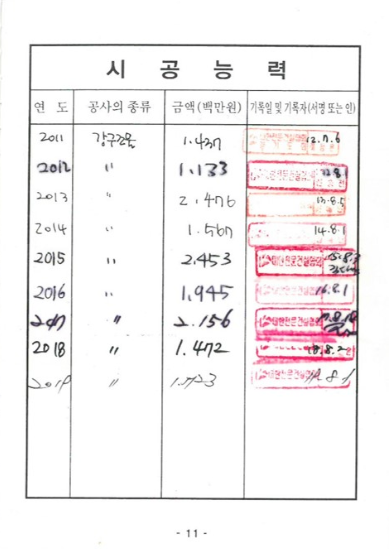 시 공 능 력
연 도 공사의 종류 금액(백만원) 기록일 및 기록자(서명 또는 인)
2011 강구조물 1.437 12.7.6
2012 〃 1.133 8.1
2013 〃 2.476 13.8.5
2014 〃 1.567 14.8.1
2015 〃 2.453
2016 〃 1,945 16.8.1
2017 〃 2.156
2018 〃 1.472 18.8.2
2019 〃 8.1
- 11 -